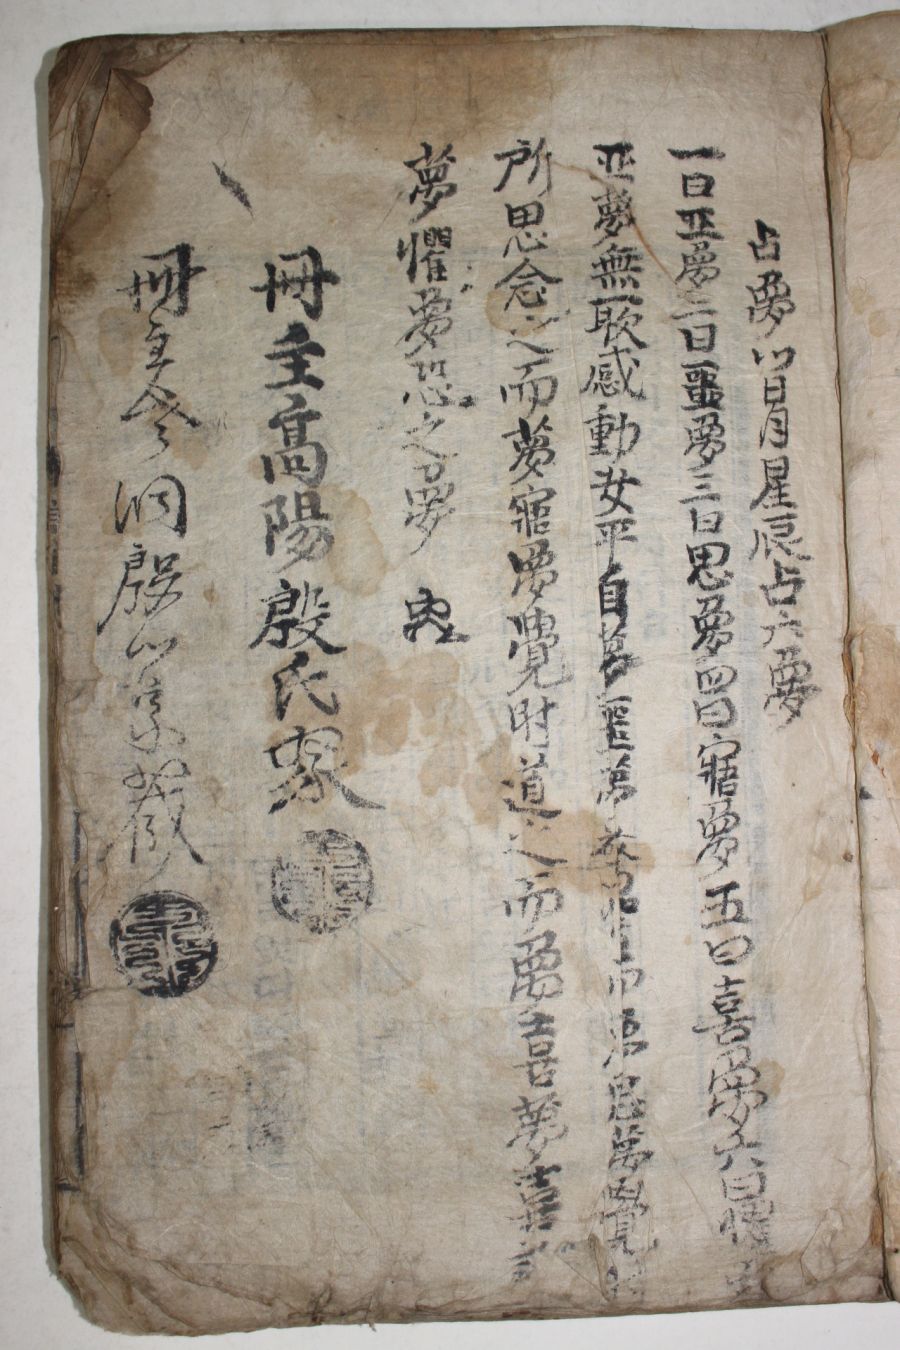 占夢以日月星辰占六夢
一曰正夢二曰噩夢三曰思夢四曰寤夢五曰喜夢六曰懼
正夢無所感動安平自夢噩夢 而 思夢覺時
所思念之而夢寤夢覺時道之而夢喜夢喜
夢懼夢恐之夢
冊主高陽殷氏家
冊主 洞殷 藏